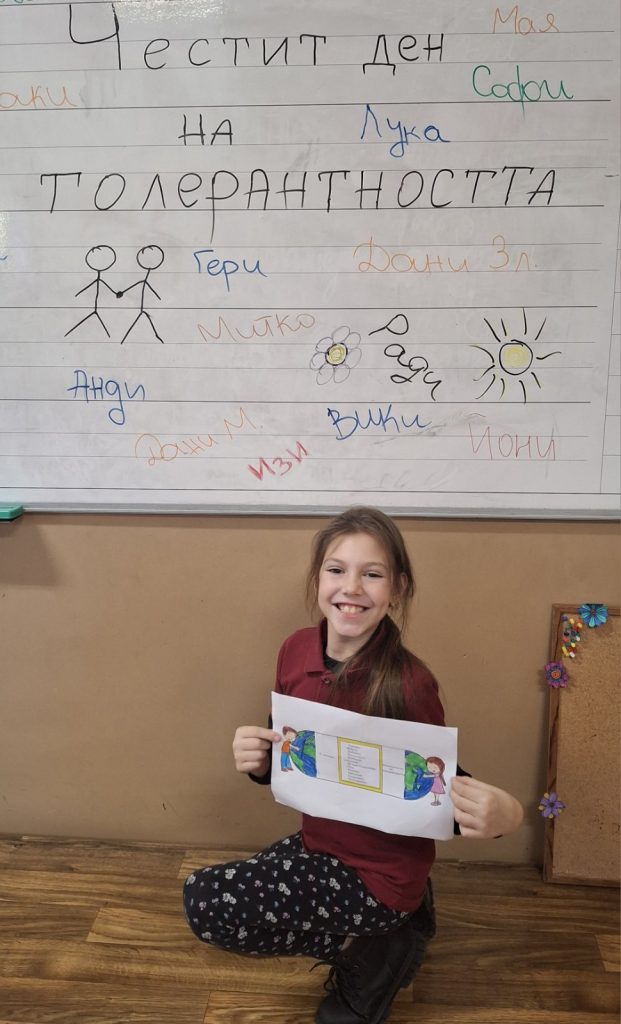 Честит ден
Мая
Софи
на
Лука
толерантността
Гери
Дани Зл.
Митко
Ради
Анди
Дани М.
Вики
Изи
Йони